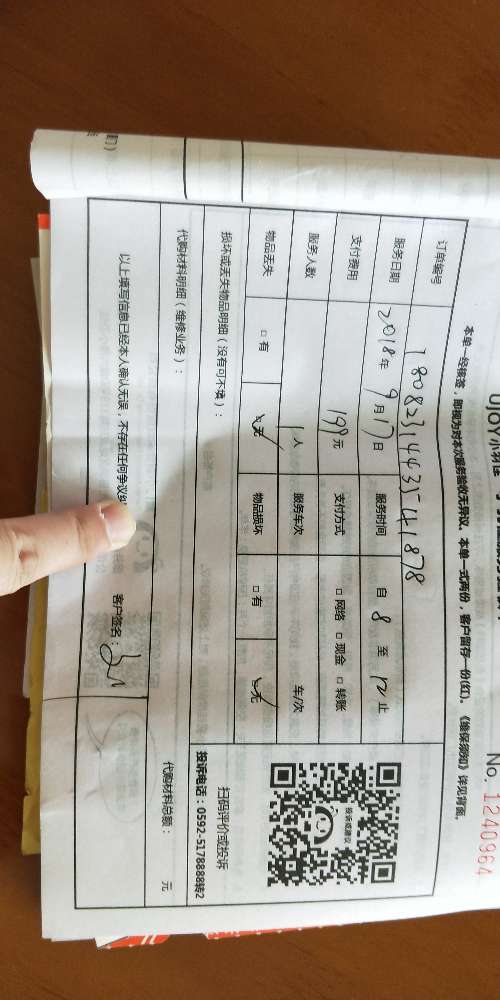 No. 1240964
本单一经核签，即视为对本次服务验收无异议。本单一式两份，客户留存一份(红)。《维保须知》详见背面。
订单编号 180823144354 1878
服务日期 2018年 9月 17日 服务时间 自 8 至 12 止
支付费用 199元 支付方式 □ 网络 □ 现金 □ 转账
服务人数 1 人 服务车次 车/次
物品丢失 □ 有 □ 无 物品损坏 □ 有 □ 无
损坏或丢失物品明细（没有可不填）：
扫码评价或投诉
投诉电话：0592-5178888转2
代购材料明细（维修业务）：
代购材料总额： 元
以上填写信息已经本人确认无误，不存在任何争议 客户签名：
投诉或建议